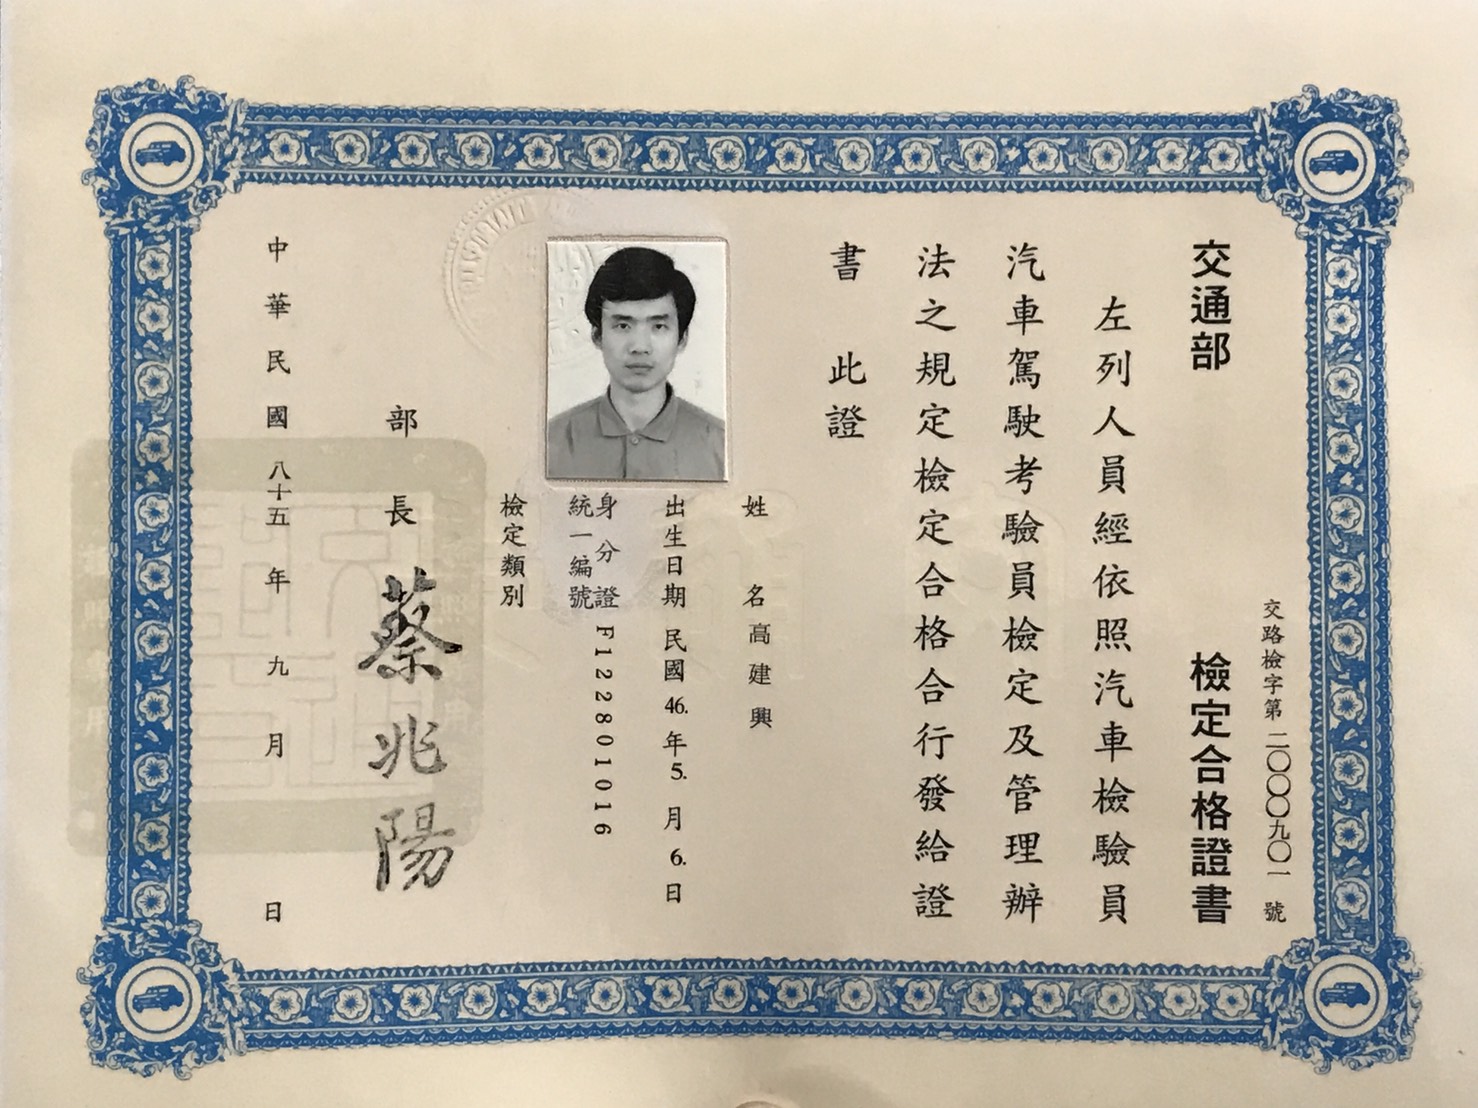 交路檢字第二〇〇〇九〇一號
交通部 檢定合格證書
左列人員經依照汽車檢驗員
汽車駕駛考驗員檢定及管理辦
法之規定檢定合格合行發給證
書 此證
姓 名 高建興
出生日期 民國 46. 年 5. 月 6. 日
身分證
統一編號 F122801016
檢定類別
部 長 蔡兆陽
中華民國八十五年九月 日